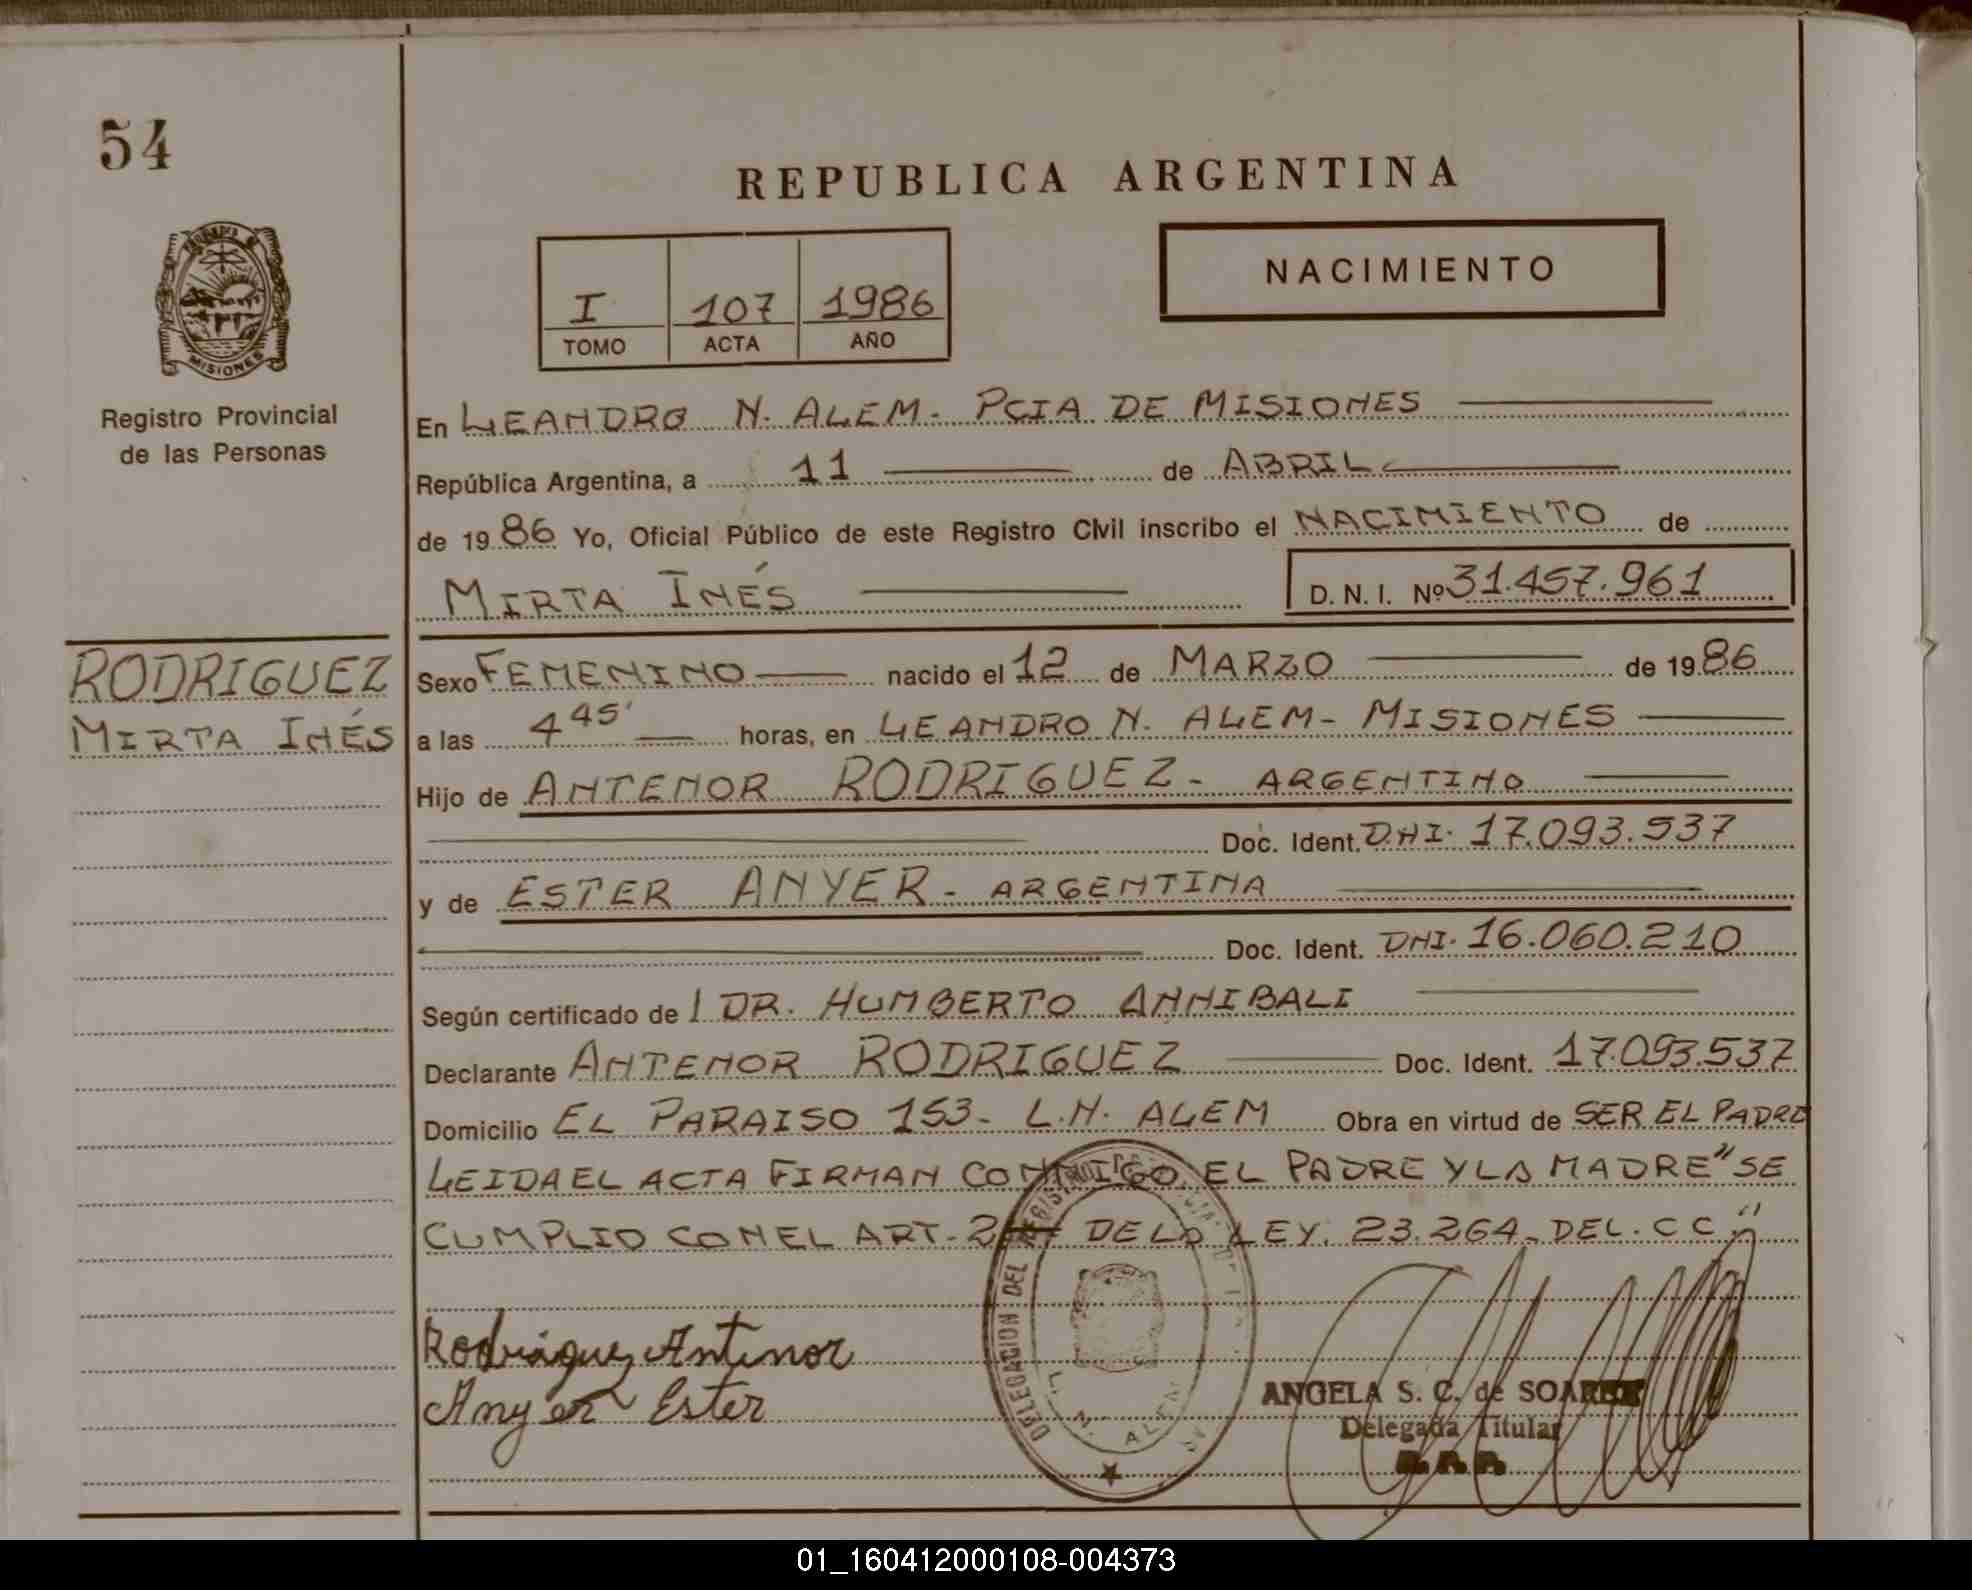 54
REPUBLICA ARGENTINA
NACIMIENTO
I 107 1986
TOMO ACTA AÑO
MISIONES
Registro Provincial
de las Personas
En LEANDRO N. ALEM - PCIA DE MISIONES
República Argentina, a 11 de ABRIL
de 1986 Yo, Oficial Público de este Registro Civil inscribo el NACIMIENTO de
MIRTA INÉS D. N. I. Nº 31.457.961
RODRIGUEZ
MIRTA INÉS
Sexo FEMENINO nacido el 12 de MARZO de 1986
a las 4 45' horas, en LEANDRO N. ALEM - MISIONES
Hijo de ANTENOR RODRIGUEZ - ARGENTINO
Doc. Ident. DNI. 17.093.537
y de ESTER ANYER - ARGENTINA
Doc. Ident. DNI. 16.060.210
Según certificado de DR. HUMBERTO ANNIBALI
Declarante ANTENOR RODRIGUEZ Doc. Ident. 17.093.537
Domicilio EL PARAISO 153 - L.N. ALEM Obra en virtud de SER EL PADRE
LEIDA EL ACTA FIRMAN CONMIGO EL PADRE Y LA MADRE "SE
CUMPLIO CON EL ART. DE LA LEY. 23.264 - DEL. C C."
Rodriguez Antenor
Anyer Ester
DELEGACION DEL REGISTRO
L. N. ALEM
ANGELA S. C. de SOAREZ
Delegada Titular
R. P. P.
01_160412000108-004373